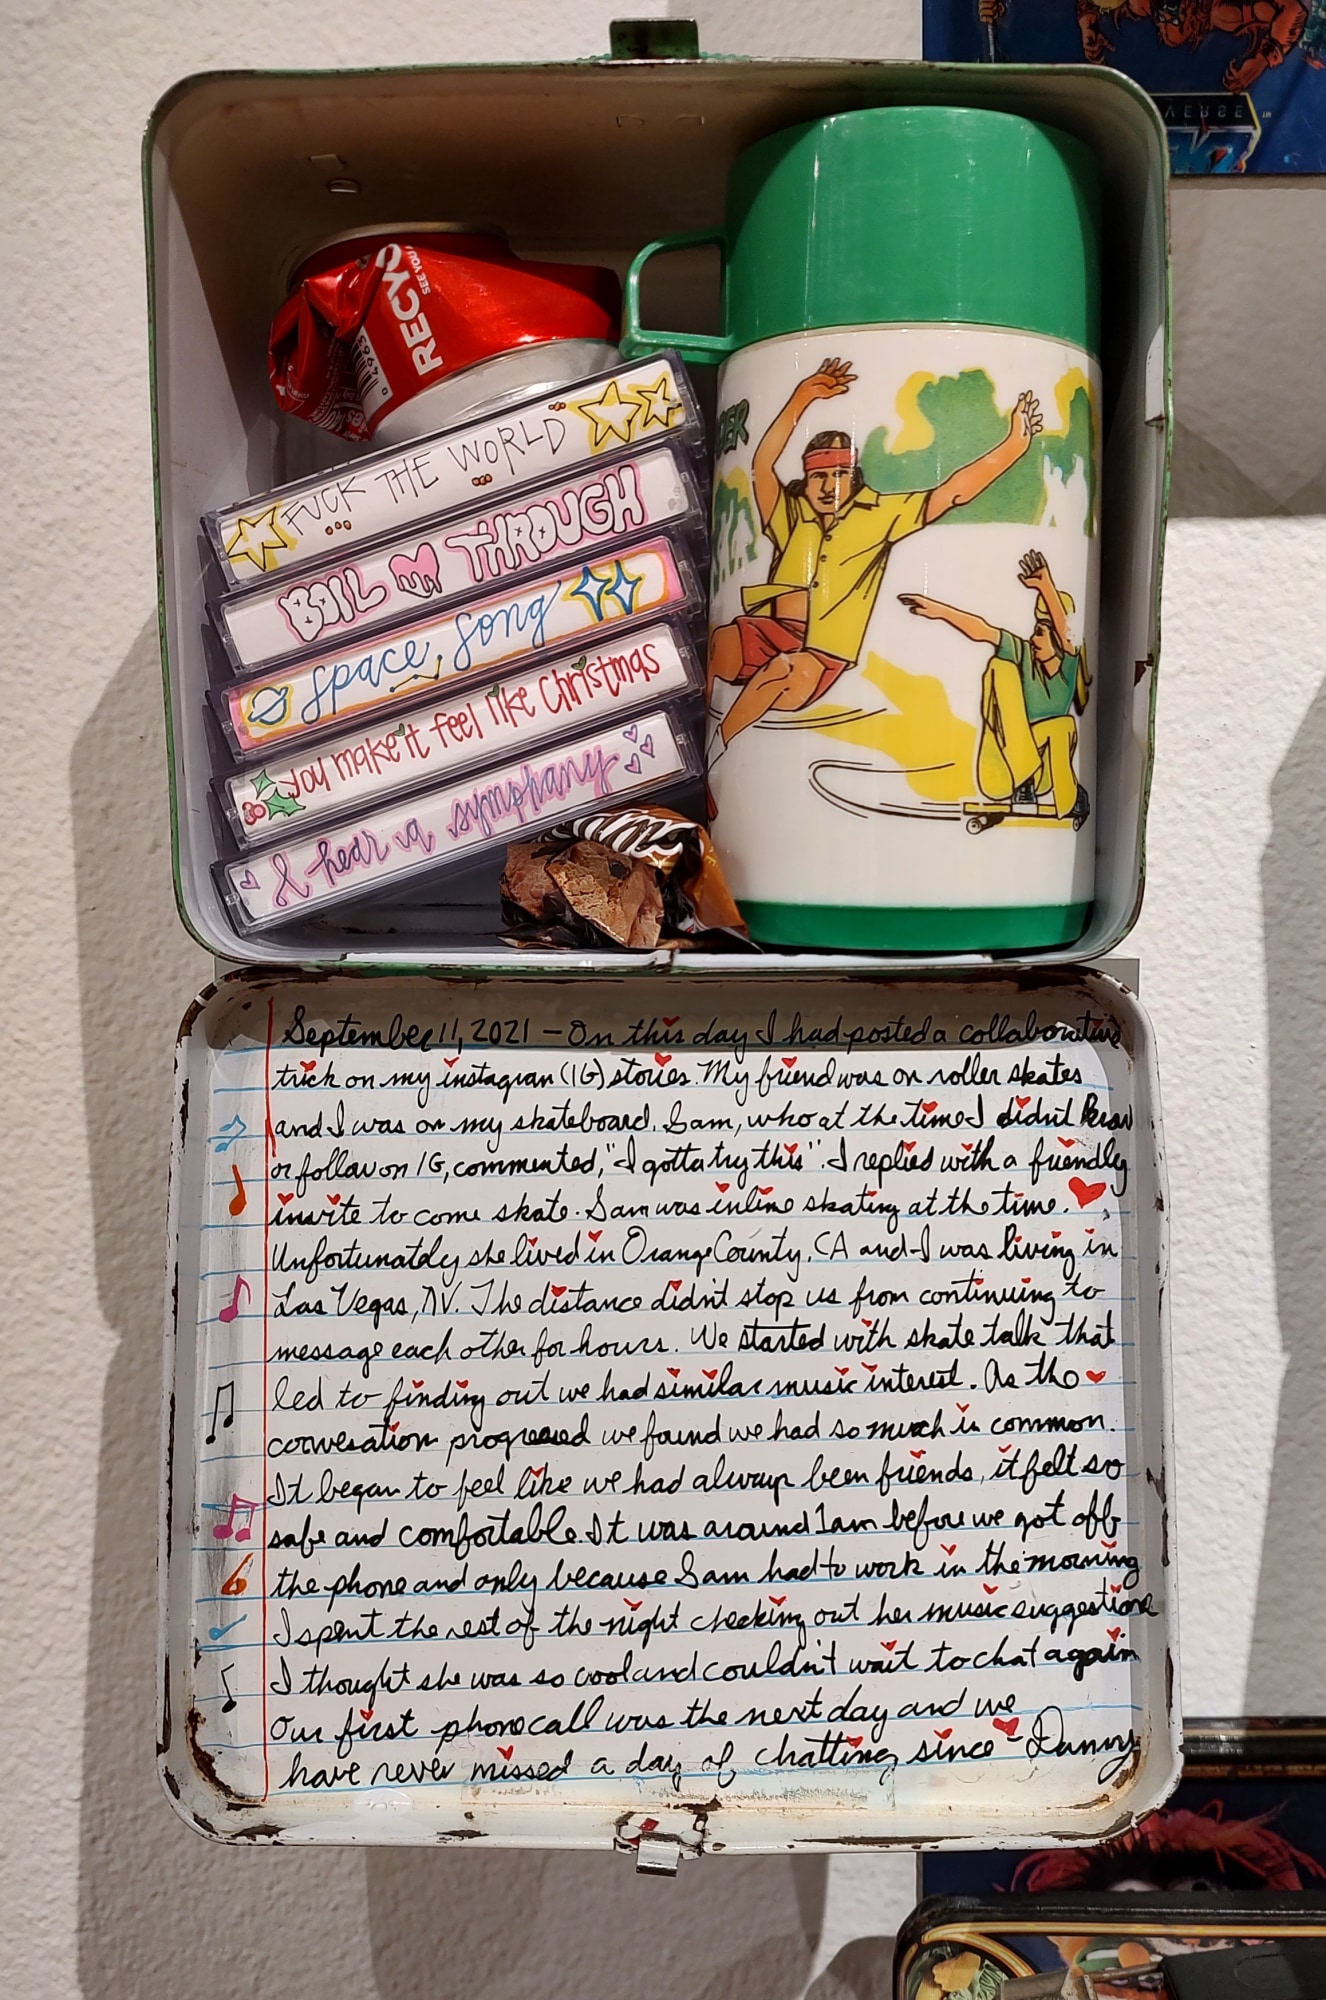 VERSE
RECYC
SEE YOU
FUCK THE WORLD
BOIL THROUGH
Space Song
You make it feel like Christmas
I hear a symphony
September 11, 2021 – On this day I had posted a collaborative
trick on my instagram (IG) stories. My friend was on roller skates
and I was on my skateboard. Sam, who at the time I didn't know
or follow on IG, commented, "I gotta try this". I replied with a friendly
invite to come skate. Sam was inline skating at the time.
Unfortunately she lived in Orange County, CA and I was living in
Las Vegas, NV. The distance didn't stop us from continuing to
message each other for hours. We started with skate talk that
led to finding out we had similar music interest. As the
conversation progressed we found we had so much in common.
It began to feel like we had always been friends, it felt so
safe and comfortable. It was around 1am before we got off
the phone and only because Sam had to work in the morning
I spent the rest of the night checking out her music suggestions
I thought she was so cool and couldn't wait to chat again
Our first phone call was the next day and we
have never missed a day of chatting since - Danny